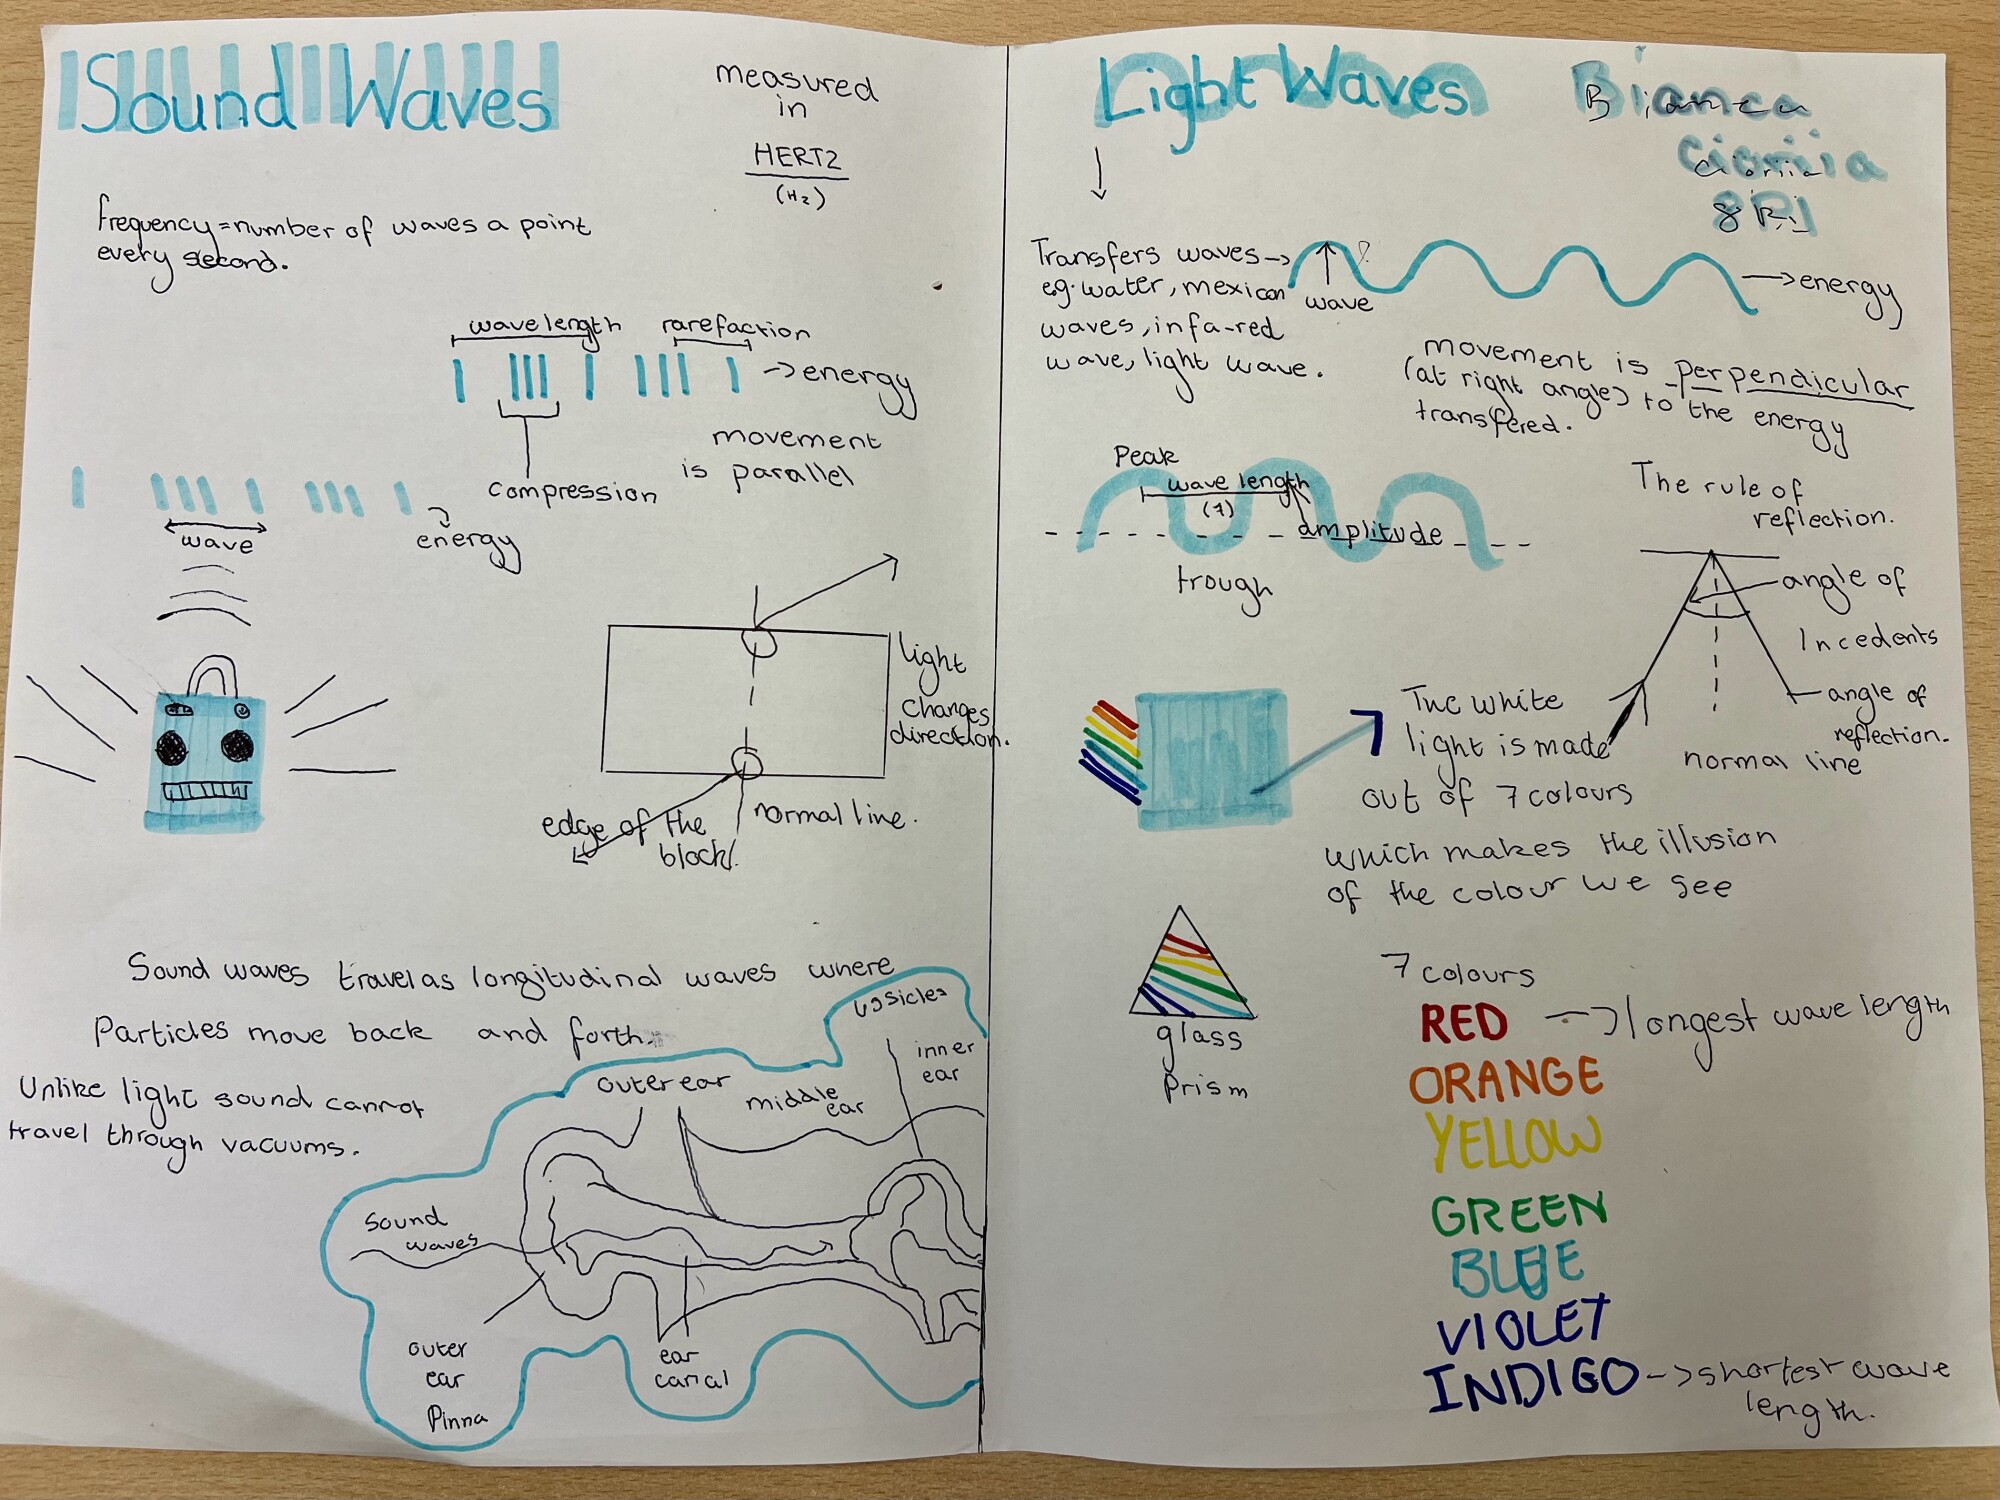 Sound Waves
measured
in
HERTZ
(Hz)
frequency = number of waves a point
every second.
wavelength
rarefaction
→ energy
compression
movement
is parallel
wave
energy
light
changes
direction.
edge of the
block.
normal line.
Sound waves travel as longitudinal waves where
Particles move back and forth.
Unlike light sound cannot
travel through vacuums.
outer ear
middle
ear
inner
ear
sound
waves
outer
ear
Pinna
ear
canal
Light Waves
Bianca
8R1
Transfers waves →
eg. water, mexican
waves, infa-red
wave, light wave.
wave
→ energy
movement is perpendicular
(at right angle) to the energy
transfered.
Peak
wave length
amplitude
trough
The rule of
reflection.
angle of
Incedents
angle of
reflection.
normal line
The white
light is made
out of 7 colours
which makes the illusion
of the colour we see
glass
Prism
7 colours
RED → longest wave length
ORANGE
YELLOW
GREEN
BLUE
VIOLET
INDIGO → shortest wave
length.